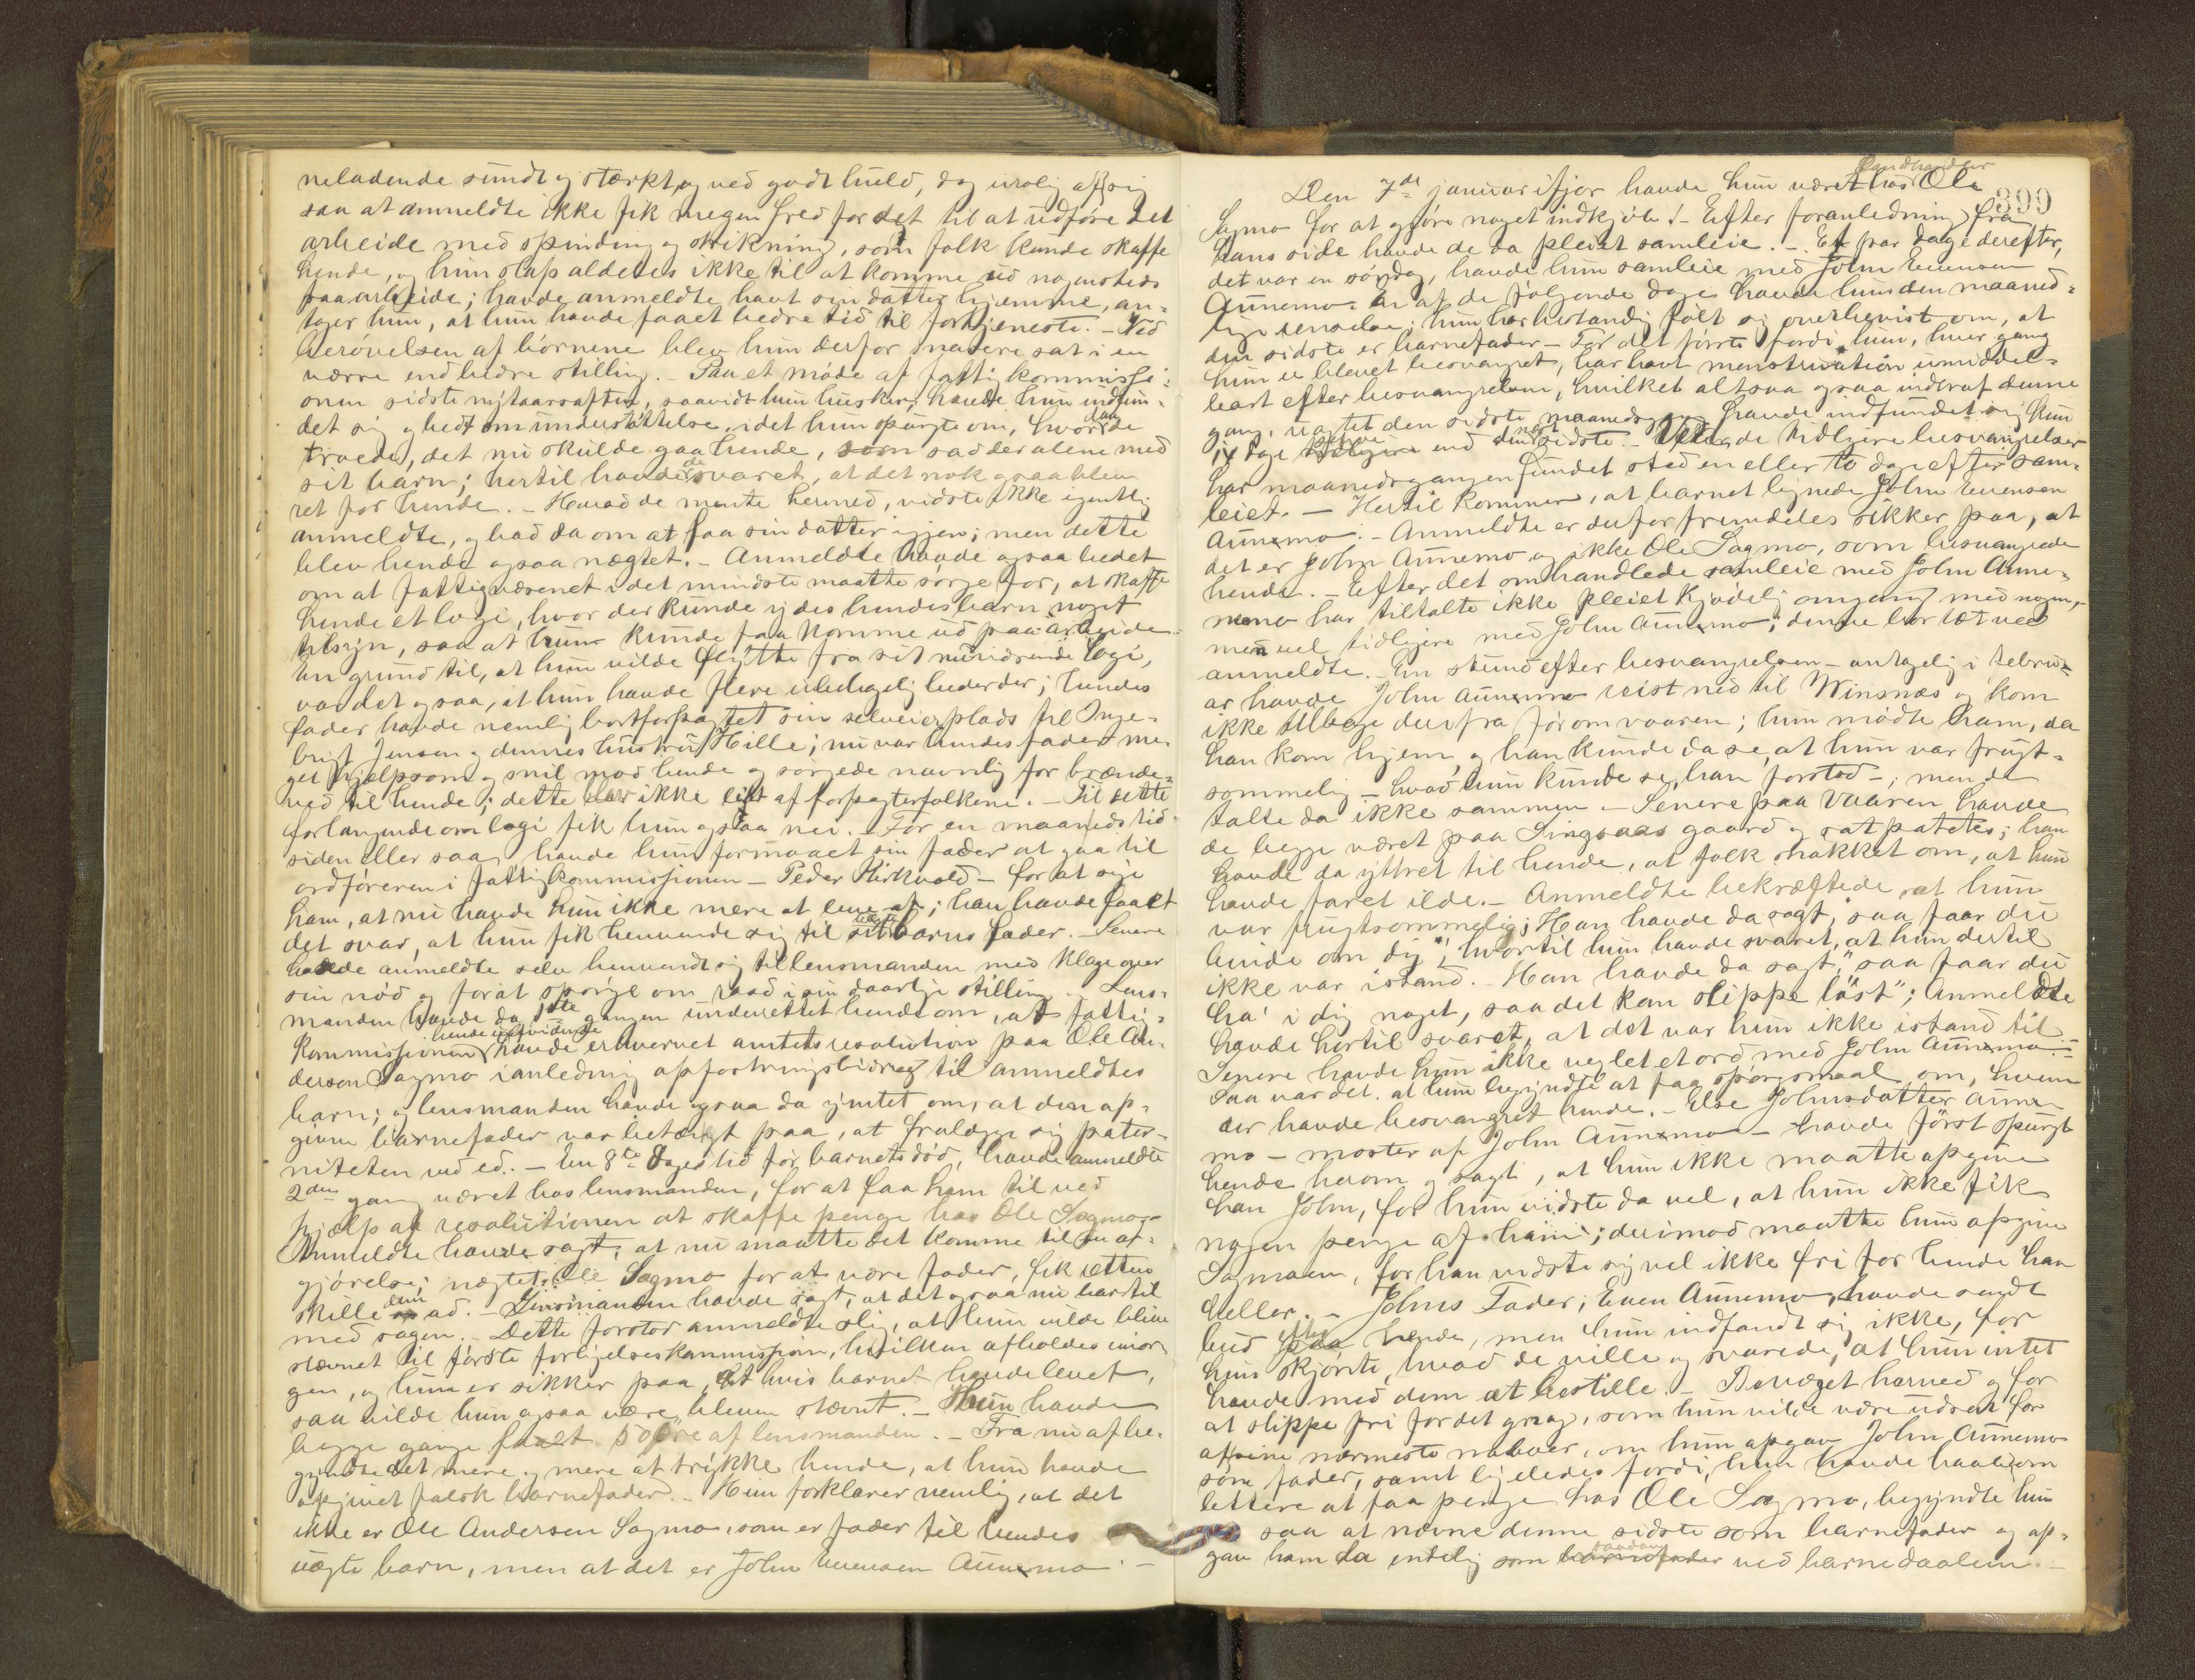 neladende sundt og stærkt, og ved godt huld, dog urolig af sig
saa at anmeldte ikke fik megen fred for det til at udføre det
arbeide med spinding og strikning, som folk kunde skaffe
hende, og hun slap aldeles ikke til at komme ud nogensteds
paa arbeide; havde anmeldte havt sin datter hjemme, an-
tager hun, at hun havde faaet bedre tid til fortjeneste. – Ved
berøvelsen af børnene blev hun derfor snarere sat i en
værre end bedre stilling. – Paa et møde af fattigkommissi-
onen sidste nytaarsaften, saavidt hun husker, havde hun indfun-
det sig og bedt om understøttelse, idet hun spurgte om, hvordan de
troede, det nu skulde gaa hende, som sad der alene med
sit barn; hertil havde de svaret, at det nok ogsaa blev
ret for hende. – Hvad de mente hermed, vidste ikke egentlig
anmeldte, og bad da om at faa sin datter igjen; men dette
blev hende ogsaa nægtet. – Anmeldte havde ogsaa bedet
om at fattigvæsenet i det mindste maatte sørge for, at skaffe
hende et logi, hvor der kunde ydes hendes barn noget
tilsyn, saa at hun kunde faa komme ud paa arbeide.
En grund til, at hun vilde flytte fra sit nuværende logi,
var det ogsaa, at hun havde flere ubehageligheder der; hendes
fader havde nemlig bortforpagtet sin selveierplads til Inge-
brigt Jensen og dennes hustru Hille; nu var hendes fader me-
get hjelpsom og snil mod hende og sørgede navnlig for brænde-
ved til hende; dette blev ikke likt af forpagterfolkene. – Til dette
forlangende om logi fik hun ogsaa nei. – For en maaneds tid
siden eller saa, havde hun formaaet sin fader at gaa til
ordføreren i fattigkommissionen – Peder Kirkvold – for at sige
ham, at nu havde hun ikke mere at leve af; han havde faaet
det svar, at hun fik henvende sig til sit barns fader. – Senere
havde anmeldte selv henvendt sig til lensmanden med klage over
sin nød og for at spørge om raad i sin daarlige stilling. – Lens-
manden havde da 1ste gangen underrettet hende om, at fattig-
kommissionen hende uafvidende havde erhvervet amtets resolution paa Ole An-
dersen Sagmo i anledning opfostringsbidrag til anmeldtes
barn; og lensmanden havde ogsaa da ymtet om, at den op-
givne barnefader var betænkt paa, at fralægge sig pater-
niteten ved ed. – En 8te dages tid før barnets død, havde anmeldte
2den gang været hos lensmanden, for at faa ham til ved
hjælp af resolutionen at skaffe penge hos Ole Sagmo. –
Anmeldte havde sagt, at nu maatte det komme til en af-
gjørelse; nægtet Ole Sagmo for at være fader, fik retten
skille dem ad. – Lensmanden havde sagt, at det ogsaa nu bar til
med sagen. – Dette forstod anmeldte slig, at hun vilde blive
stævnet til første forligelseskommission, hvilken afholdes imor-
gen, og hun er sikker paa, at hvis barnet havde levet,
saa vilde hun ogsaa være bleven stævnt. – Hun havde
begge gange faaet 50 øre af lensmanden. – Fra nu af be-
gyndte det mere og mere at trykke hende, at hun havde
opgivet falsk barnefader. – Hun forklarer nemlig, at det
ikke er Ole Andersen Sagmo, som er fader til hendes
uægte barn, men at det er John Evensen Aunemo. –
399
Den 7de januar ifjor havde hun været hos Landhandler Ole
Sagmo for at gjøre noget indkjøb. – Efter foranledning fra
hans side havde de da pleiet samleie. – Et par dage derefter,
det var en søndag, havde hun samleie med John Evensen
Aunemo. En af de følgende dage havde hun den maaned-
lige renselse; hun har bestandig følt sig overbevist om, at
den sidste er barnefader – For det første fordi hun, hver gang
hun er blevet besvangret, har havt menstruation umiddel-
bart efter besvangrelsen, hvilket altsaa ogsaa indtraf denne
gang, uagtet den sidste maanedsgang havde indfundet sig kun
14 dage før end den næst sidste. – Ved de tidligere besvangrelser
har maanedsgangen fundet sted en eller to dage efter sam-
leiet. – Hertil kommer, at barnet lignede John Evensen
Aunemo. – Anmeldte er derfor fremdeles sikker paa, at
det er John Aunemo og ikke Ole Sagmo, som besvangrede
hende. – Efter det omhandlede samleie med John Aune-
mo har tiltalte ikke pleiet kjødelig omgang med nogen, –
men vel tidligere med John Aunemo; denne bor tæt ved
anmeldte. – En stund efter besvangrelsen – antagelig i febru-
ar havde John Aunemo reist ned til Winsnæs og kom
ikke tilbage derfra før om vaaren; hun mødte ham, da
han kom hjem, og han kunde da se, at hun var frugt-
sommelig – hvad hun kunde se, han forstod –; men de
talte da ikke sammen. – Senere paa Vaaren havde
de begge været paa Singsaas gaard og sat patetes; han
havde da yttret til hende, at folk snakket om, at hun
havde faret ilde. – Anmeldte bekræftede, at hun
var frugtsommelig; Han havde da sagt, "saa faar du
binde om dig", hvortil hun havde svaret, at hun dertil
ikke var istand. – Han havde da sagt, "saa faar du
ha' i dig noget, saa det kan slippe løst"; Anmeldte
havde hertil svaret, at det var hun ikke istand til. –
Senere havde hun ikke vexlet et ord med John Aunemo. –
Saa var det, at hun begyndte at faa spørgsmaal om, hvem
der havde besvangret hende. – Else Johnsdatter Aune-
mo – moster af John Aunemo – havde først spurgt
hende herom og sagt, at hun ikke maatte opgive
han John, for hun vidste da vel, at hun ikke fik
nogen penge af ham; derimod maatte hun opgive
Sagmoen, for han vidste sig vel ikke fri for hende han
heller. – Johns Fader; Even Aunemo, havde sendt
bud efter hende, men hun indfandt sig ikke, for
hun skjønte, hvad de ville og svarede, at hun intet
havde med dem at bestille. – Bevæget herved og for
at slippe fri for det gnag, som hun vilde være udsat for
af sine nærmeste naboer, om hun opgav John Aunemo
som fader, samt ligeledes fordi, hun havde haab om
lettere at faa penge hos Ole Sagmo, begyndte hun
saa at nævne denne sidste som barnefader og op-
gav ham da endelig som saadan ved barnedaaben. –